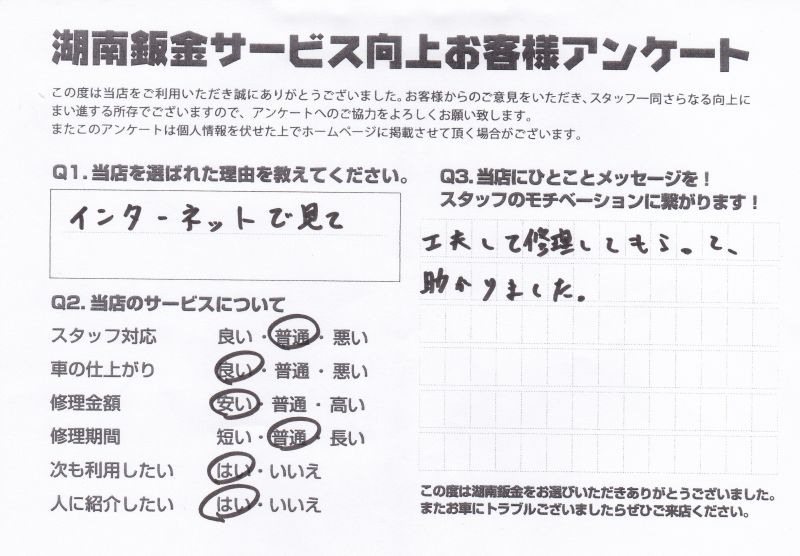 湖南鈑金サービス向上お客様アンケート
この度は当店をご利用いただき誠にありがとうございました。お客様からのご意見をいただき、スタッフ一同さらなる向上に
まい進する所存でございますので、アンケートへのご協力をよろしくお願い致します。
またこのアンケートは個人情報を伏せた上でホームページに掲載させて頂く場合がございます。
Q1.当店を選ばれた理由を教えてください。
インターネットで見て
Q2.当店のサービスについて
スタッフ対応 良い・普通・悪い
車の仕上がり 良い・普通・悪い
修理金額 安い・普通・高い
修理期間 短い・普通・長い
次も利用したい はい・いいえ
人に紹介したい はい・いいえ
Q3.当店にひとことメッセージを！
スタッフのモチベーションに繋がります！
工夫して修理してもらって、
助かりました。
この度は湖南鈑金をお選びいただきありがとうございました。
またお車にトラブルございましたらぜひご来店ください。